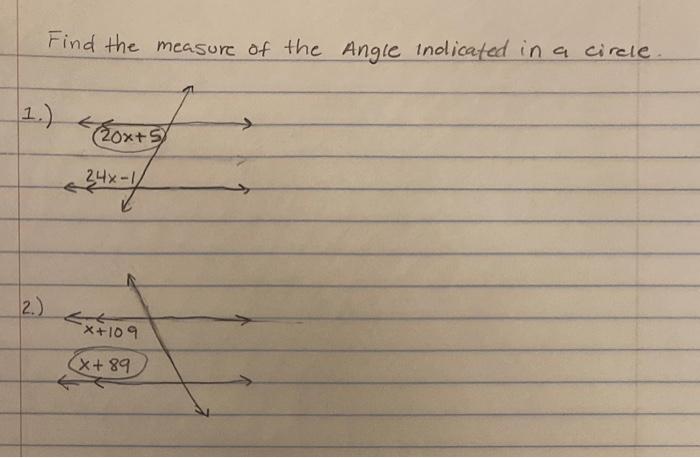 Find the measure of the Angle indicated in a circle.
1.)
(20x+5)
24x-1
2.)
x+109
x+89